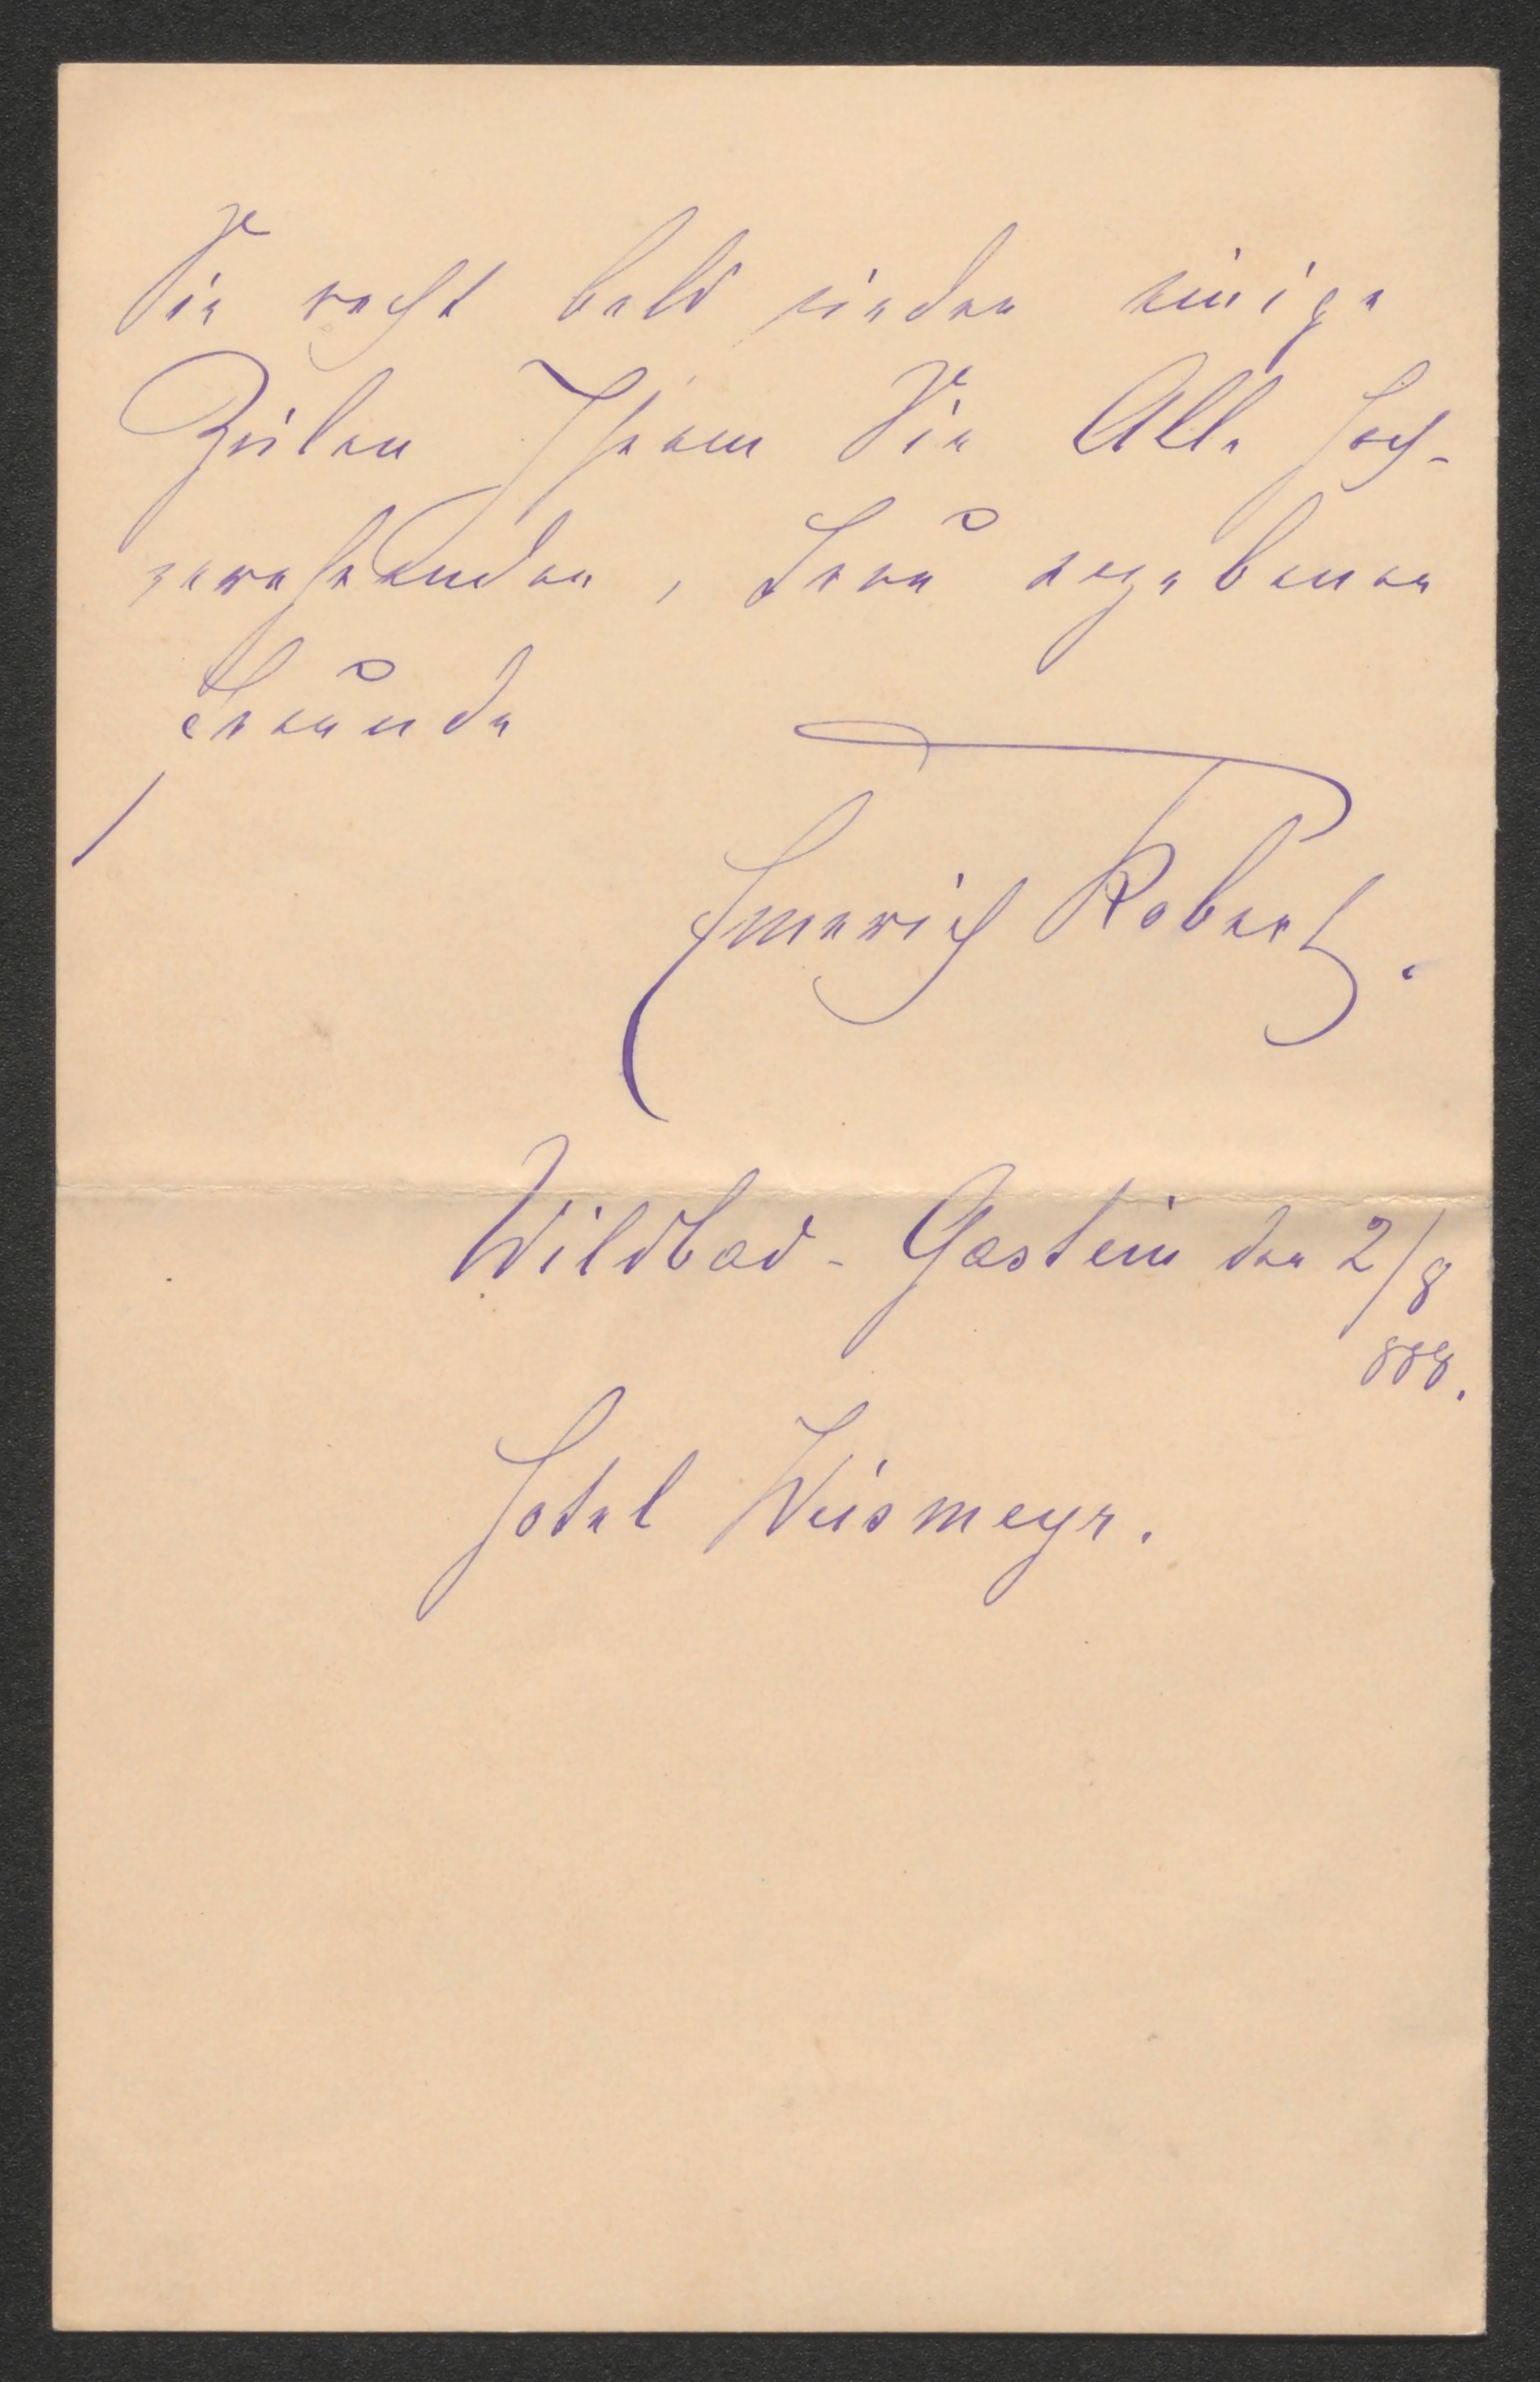 Sie recht bald wieder einige
Zeilen Ihrem Sie Alle hoch-
verehrenden, treu ergebenen
Freunde
Emerich Robert.
Wildbad - Gastein den 2/8
888.
Hotel Weismeyr.